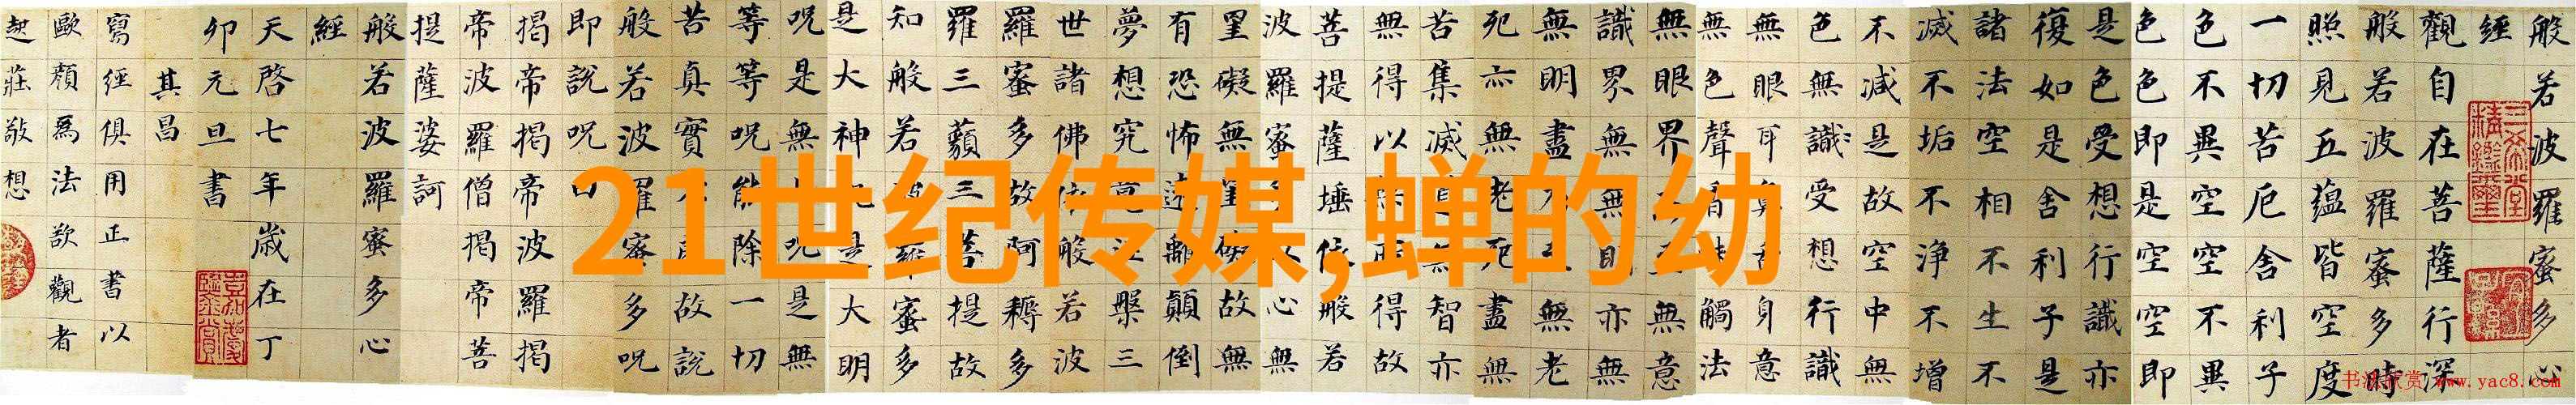 般若波羅蜜多心
經
觀自在菩薩行深
般若波羅蜜多時
照見五蘊皆空度
一切苦厄舍利子
色不異空空不異
色色即是空空即
是色受想行識亦
復如是舍利子是
諸法空相不生不
滅不垢不淨不增
不減是故空中無
色無識受想行識
無眼耳鼻舌身意
無色聲香味觸法
無眼界乃至無意
識界無無明亦無
無明盡乃至無老
死亦無老死盡無
苦集滅道無智亦
無得以無所得故
菩提薩埵依般若
波羅蜜多故心無
罣礙無罣礙故無
有恐怖遠離顛倒
夢想究竟涅槃三
世諸佛依般若波
羅蜜多故阿耨多
羅三藐三菩提故
知般若波羅蜜多
是大神咒是大明
呪是無上呪是無
等等呪能除一切
苦真實不虛故說
般若波羅蜜多呪
即說呪曰
揭帝揭帝波羅揭
帝波羅僧揭帝菩
提薩婆訶
般若波羅蜜多心
經
天啓七年歲在丁
卯元旦書
其昌
寫經俱用正書以
歐顏爲法欲觀者
起莊敬想
21世纪传媒,蝉的幼
书法欣赏 www.yac8.com